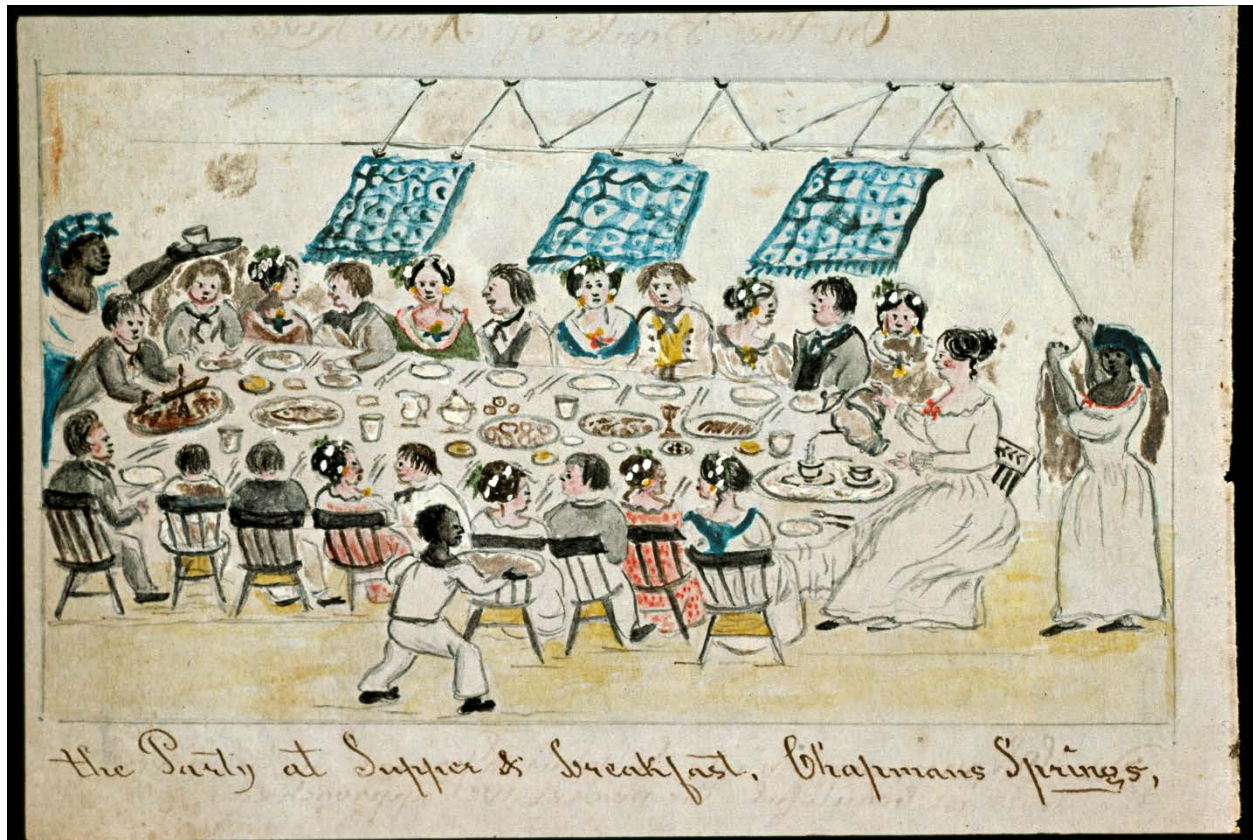 the Party at Supper & breakfast, Chapmans Springs,